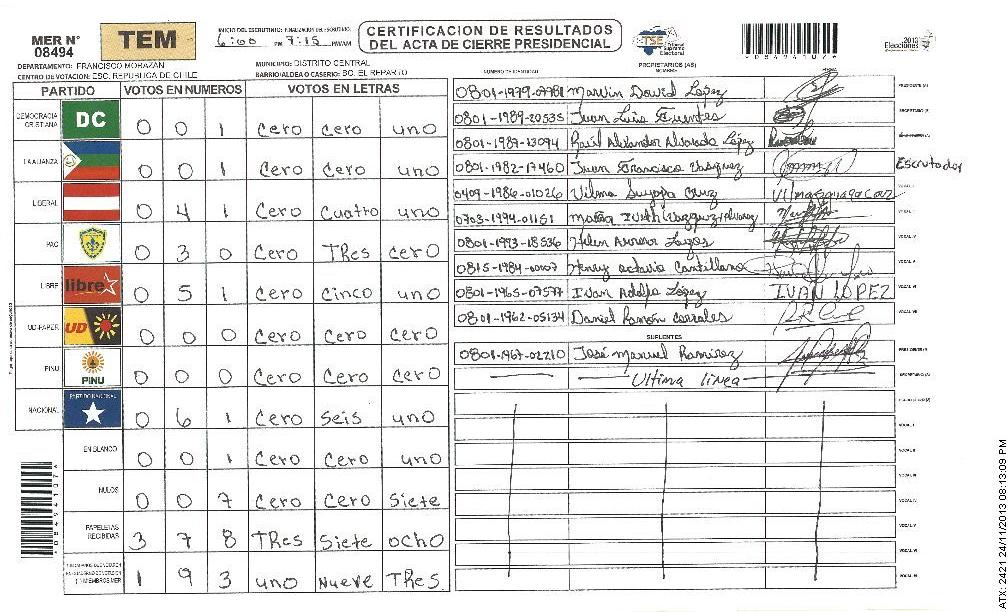 MER N° 08494
TEM
INICIO DEL ESCRUTINIO: FINALIZACIÓN DEL ESCRUTINIO:
6:00 PM 7:15 PM/AM
CERTIFICACION DE RESULTADOS
DEL ACTA DE CIERRE PRESIDENCIAL
TSE Tribunal Supremo Electoral
2013 Elecciones
DEPARTAMENTO: FRANCISCO MORAZAN
MUNICIPIO: DISTRITO CENTRAL
CENTRO DE VOTACION: ESC. REPUBLICA DE CHILE
BARRIO/ALDEA O CASERIO: BO. EL REPARTO
NÚMERO DE IDENTIDAD
PROPIETARIOS (AS)
NOMBRE
FIRMA
PARTIDO VOTOS EN NUMEROS VOTOS EN LETRAS
DEMOCRACIA CRISTIANA DC 0 0 1 Cero Cero uno
LA ALIANZA 0 0 1 Cero Cero uno
LIBERAL 0 4 1 Cero Cuatro uno
PAC 0 3 0 Cero TRes CerO
LIBRE libre 0 5 1 Cero Cinco uno
UD-FAPER UD 0 0 0 Cero Cero Cero
PINU PINU 0 0 0 Cero Cero CerO
NACIONAL PARTIDO NACIONAL 0 6 1 Cero Seis uno
EN BLANCO 0 0 1 Cero Cero uno
NULOS 0 0 7 Cero Cero Siete
PAPELETAS RECIBIDAS 3 7 8 TRes Siete ocho
1 9 3 uno Nueve TRes
0801-1979-07781 Marvin David Lopez PRESIDENTE (A)
0801-1989-20535 Juan Luis Fuentes SECRETARIO (A)
0801-1987-13094 Raúl Alexander Alvarado López
0801-1982-17460 Juan Francisco Vasquez Escrutador
0409-1986-01026 Vilma Suyapa Cruz VOCAL I
0703-1994-01151 Maria VOCAL II
0801-1993-18536 Helen Aurora Lagos VOCAL IV
0815-1984-00107 Henry octavio Cantillano VOCAL V
0801-1965-07577 Ivan Adolfo López IVAN LOPEZ VOCAL VI
0801-1962-05134 Daniel Ramón Corrales VOCAL VII
SUPLENTES
0801-1967-02210 José Manuel Ramirez PRESIDENTE (A)
Ultima linea SECRETARIO (A)
VOCAL I
VOCAL II
VOCAL III
VOCAL IV
VOCAL V
VOCAL VI
VOCAL VII
ATX: 2421 24/11/2013 08:13:09 PM